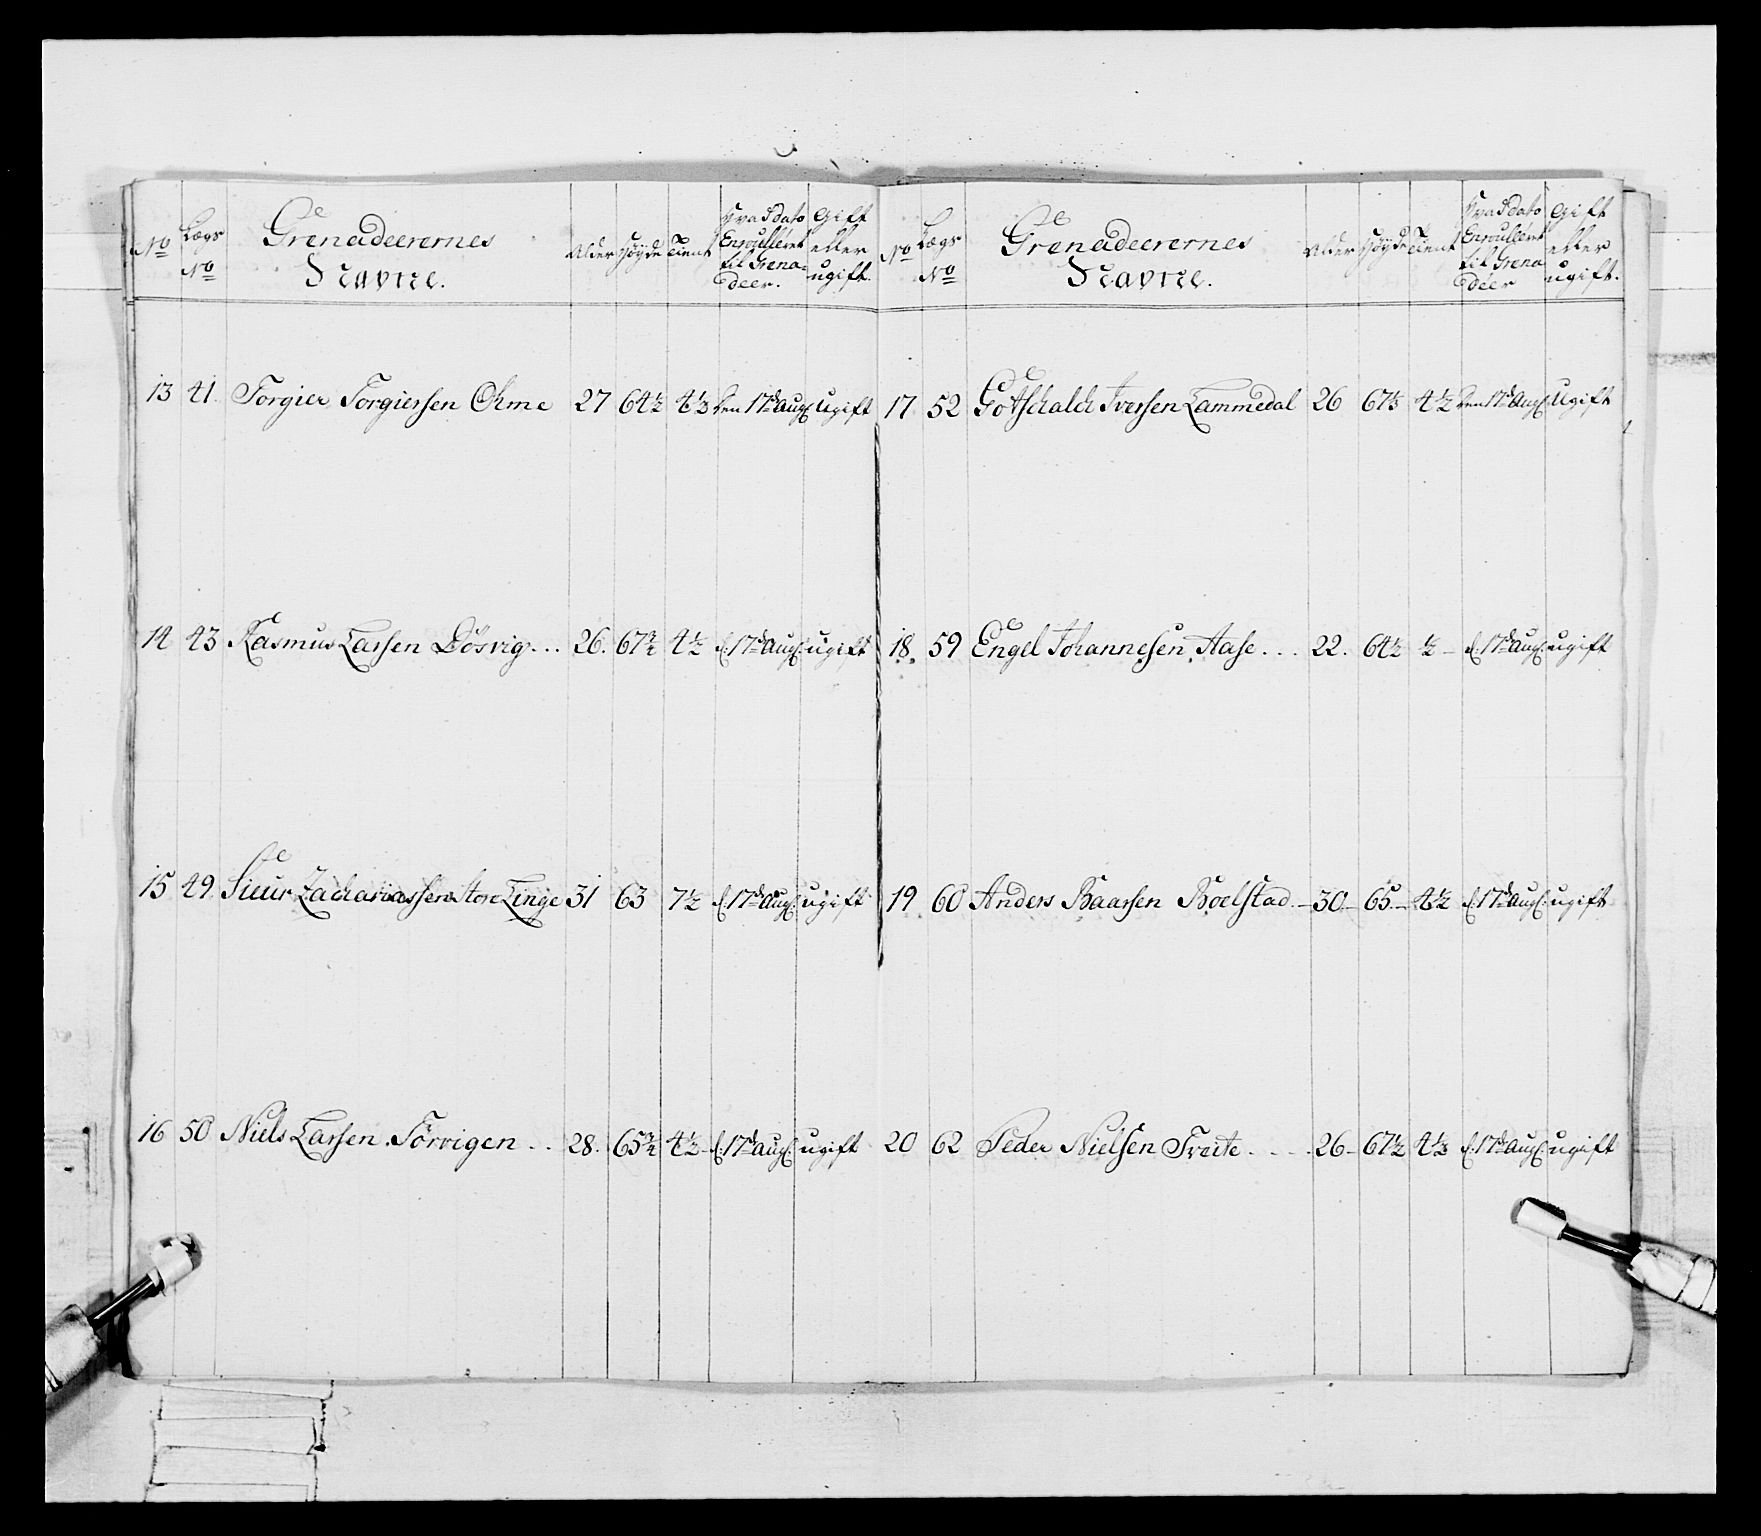 No Lægs No Grenadeerernes Navne. Alder Høyde Tient Hvad dato Enroulleret til Grenadeer. Gift eller ugift.
13 41 Torgier Torgiersen Ohme 27 64½ 4⅓ den 17de Aug: ugift
14 43 Rasmus Larsen Døsvig... 26. 67½ 4½ d: 17de Aug: ugift
15 49 Siur Zachariassen Store Linge 31 63 7½ d: 17de Aug: ugift
16 50 Niels Larsen Tørvigen .. 28. 65½ 4½ d: 17de Aug: ugift
No Lægs No Grenadeerernes Navne. Alder Høyde Tient Hvad dato Enroulleret til Grenadeer Gift eller ugift.
17 52 Gotschalch Iversen Lammedal 26 67½ 4½ den 17de Aug: Ugift
18. 59 Engel Johannesen Aase... 22. 64½ ½ d: 17de Aug: ugift
19 60 Anders Baarsen Boelstad. 30 65. 4½ d: 17de Aug: ugift
20 62 Peder Nielsen Treite.... 26 67½ 4⅓ d: 17de Aug: ugift